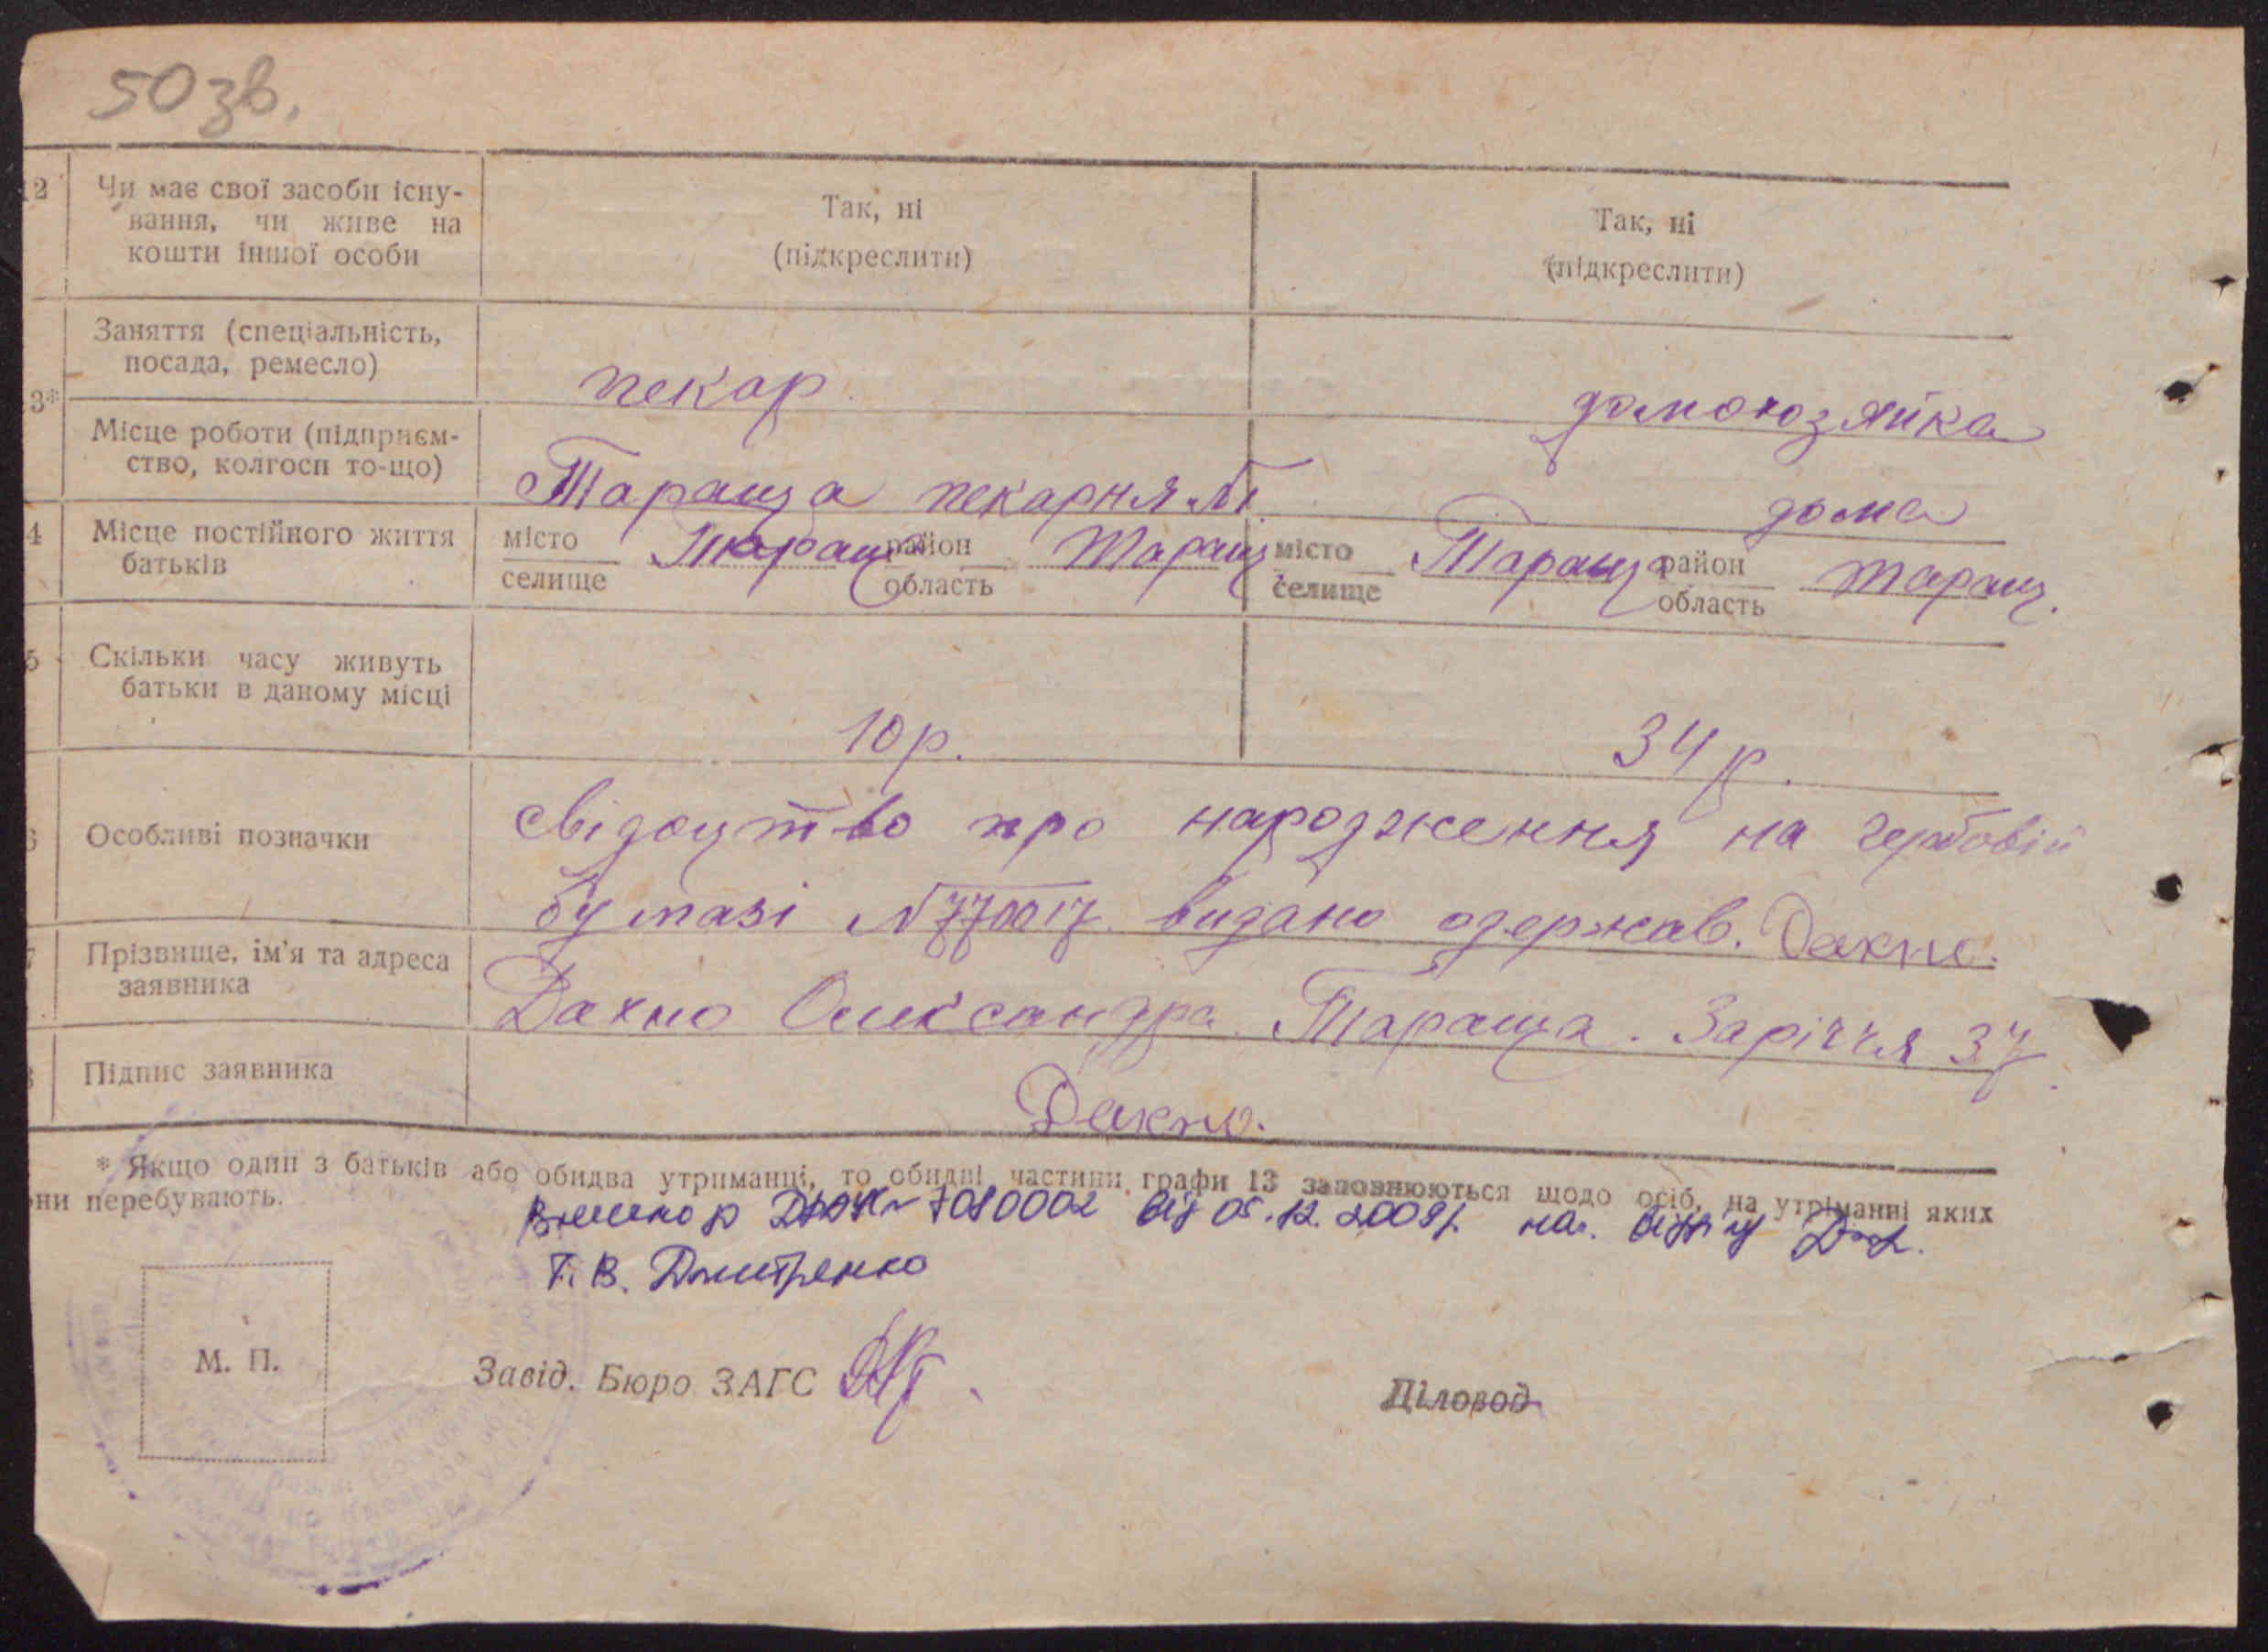 50 зв.
12 Чи має свої засоби існу-
вання, чи живе на
кошти іншої особи
Так, ні
(підкреслити)
Так, ні
(підкреслити)
Заняття (спеціальність,
посада, ремесло)
пекар
домохозяйка
3*
Місце роботи (підприєм-
ство, колгосп то-що)
Тараща пекарня №1
дома
4 Місце постійного життя
батьків
місто
селище
Тараща
район
область
Таращ
місто
селище
Тараща
район
область
Таращ.
5 Скільки часу живуть
батьки в даному місці
10 р.
34 р.
Особливі позначки
свідоцтво про народження на гербовій
бумазі N 770017 видано одержав. Дахно.
7 Прізвище, ім'я та адреса
заявника
Дахно Олександра Тараща. Заріччя 37
Підпис заявника
Дахно.
* Якщо один з батьків або обидва утриманці, то обидві частини графи 13 заповнюються щодо осіб, на утриманні яких
они перебувають.
7010002 від 05.12.2009р.
Т. В. Дмитренко
М. П.
Завід. Бюро ЗАГС
Діловод